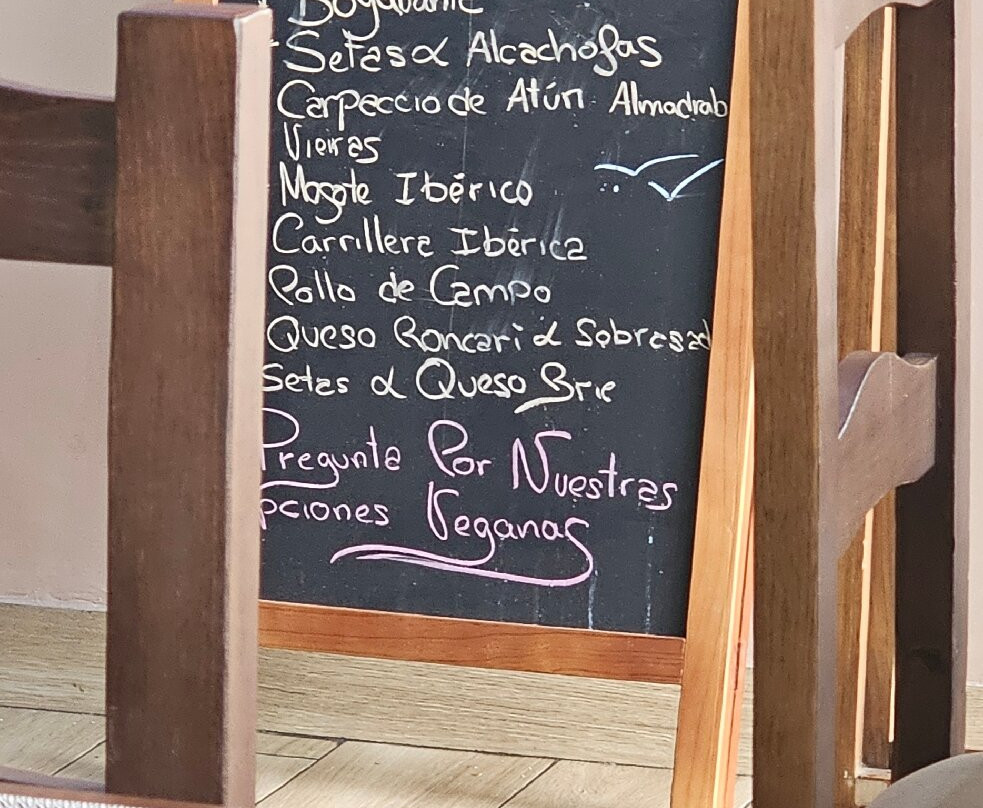 Bogavante
Setas & Alcachofas
Carpaccio de Atún Almadrab
Vieiras
Mogote Ibérico
Carrillera Ibérica
Pollo de Campo
Queso Roncari & Sobresad
Setas & Queso Brie
Pregunta Por Nuestras
pciones Veganas